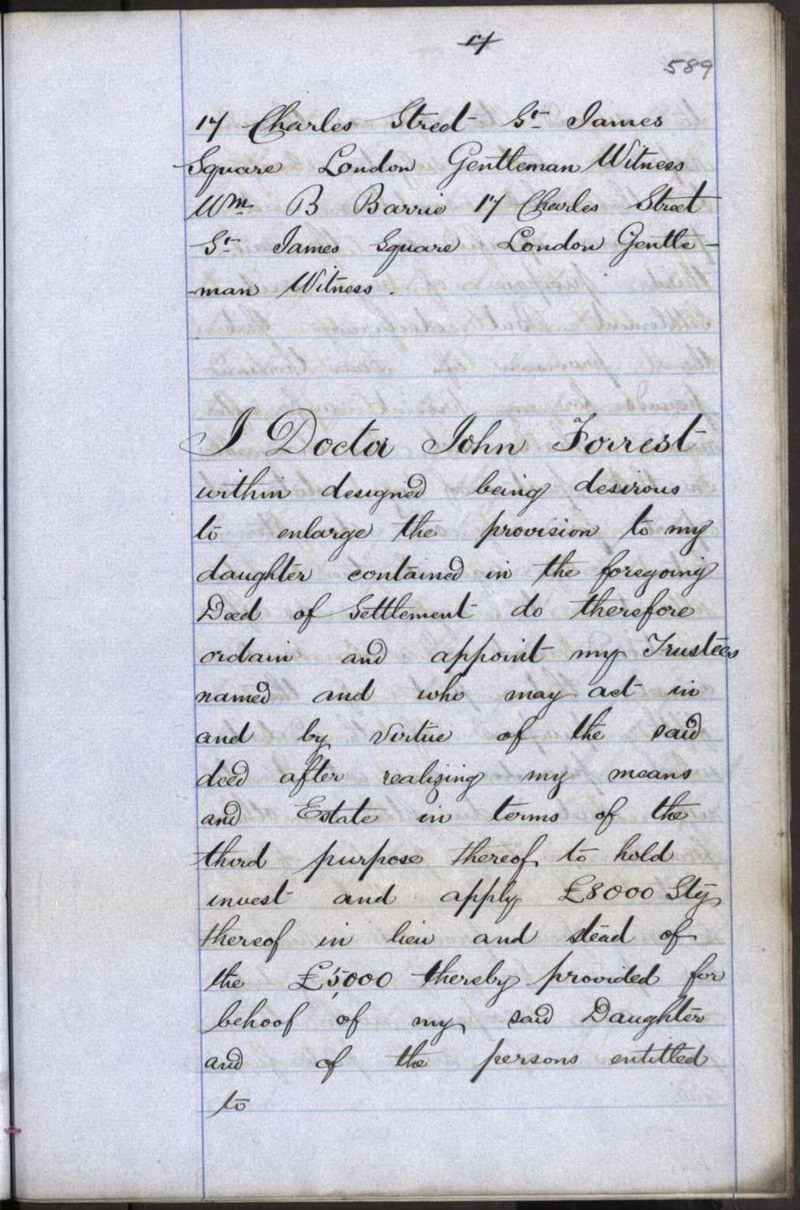 17
589
17 Charles Street St. James
Square London Gentleman Witness
Wm. B Barrie 17 Charles Street
St. James Square London Gentle-
-man Witness.
I Doctor John Forrest
within designed being desirous
to enlarge the provision to my
daughter contained in the foregoing
Deed of Settlement do therefore
ordain and appoint my Trustees
named and who may act in
and by virtue of the said
deed after realizing my means
and Estate in terms of the
third purpose thereof to hold
invest and apply £8000 Stg
thereof in lieu and stead of
the £5000 thereby provided for
behoof of my said Daughter
and of the persons entitled
to